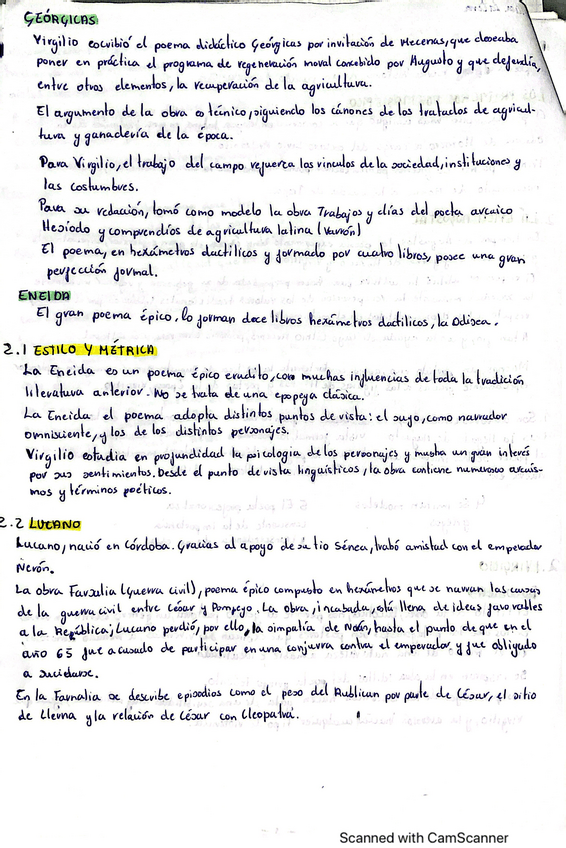 GEÓRGICAS
Virgilio escribió el poema didáctico Geórgicas por invitación de Mecenas, que deseaba
poner en práctica el programa de regeneración moral concebido por Augusto y que defendía,
entre otros elementos, la recuperación de la agricultura.
El argumento de la obra es técnico, siguiendo los cánones de los tratados de agricul-
tura y ganadería de la época.
Para Virgilio, el trabajo del campo refuerza los vinculos de la sociedad, instituciones y
las costumbres.
Para su redación, tomó como modelo la obra Trabajos y días del poeta arcaico
Hesíodo y comprendios de agricultura latina (Varrón)
El poema, en hexámetros dactílicos y formado por cuatro libros, posee una gran
perfección formal.
ENEIDA
El gran poema épico. lo forman doce libros hexámetros dactilicos, la Odisea.
2.1 ESTILO Y MÉTRICA
La Eneida es un poema épico erudito, con muchas influencias de toda la tradición
literatura anterior. No se trata de una epopeya clásica.
La Eneida el poema adopta distintos puntos de vista: el suyo, como narrador
omnisciente, y los de los distintos personajes.
Virgilio estudia en profundidad la psicologia de los personajes y muestra un gran interés
por sus sentimientos. Desde el punto de vista linguísticos, la obra contiene numerosos arcaís-
mos y términos poéticos.
2.2 LUCANO
Lucano, nació en Córdoba. Gracias al apoyo de su tio Séneca, trabó amistad con el emperador
Nerón.
La obra Farsalia (Guerra civil), poema épico compuesto en hexámetros que se narran las causas
de la guerra civil entre César y Pompeyo. La obra, inacabada, está llena de ideas favorables
a la República; Lucano perdió, por ello, la simpatía de Nerón, hasta el punto de que en el
año 65 fue acusado de participar en una conjura contra el emperador y fue obligado
a suicidarse.
En la Farsalia se describe episodios como el paso del Rubicon por parte de César, el sitio
de Lleida y la relación de César con Cleopatra.
Scanned with CamScanner